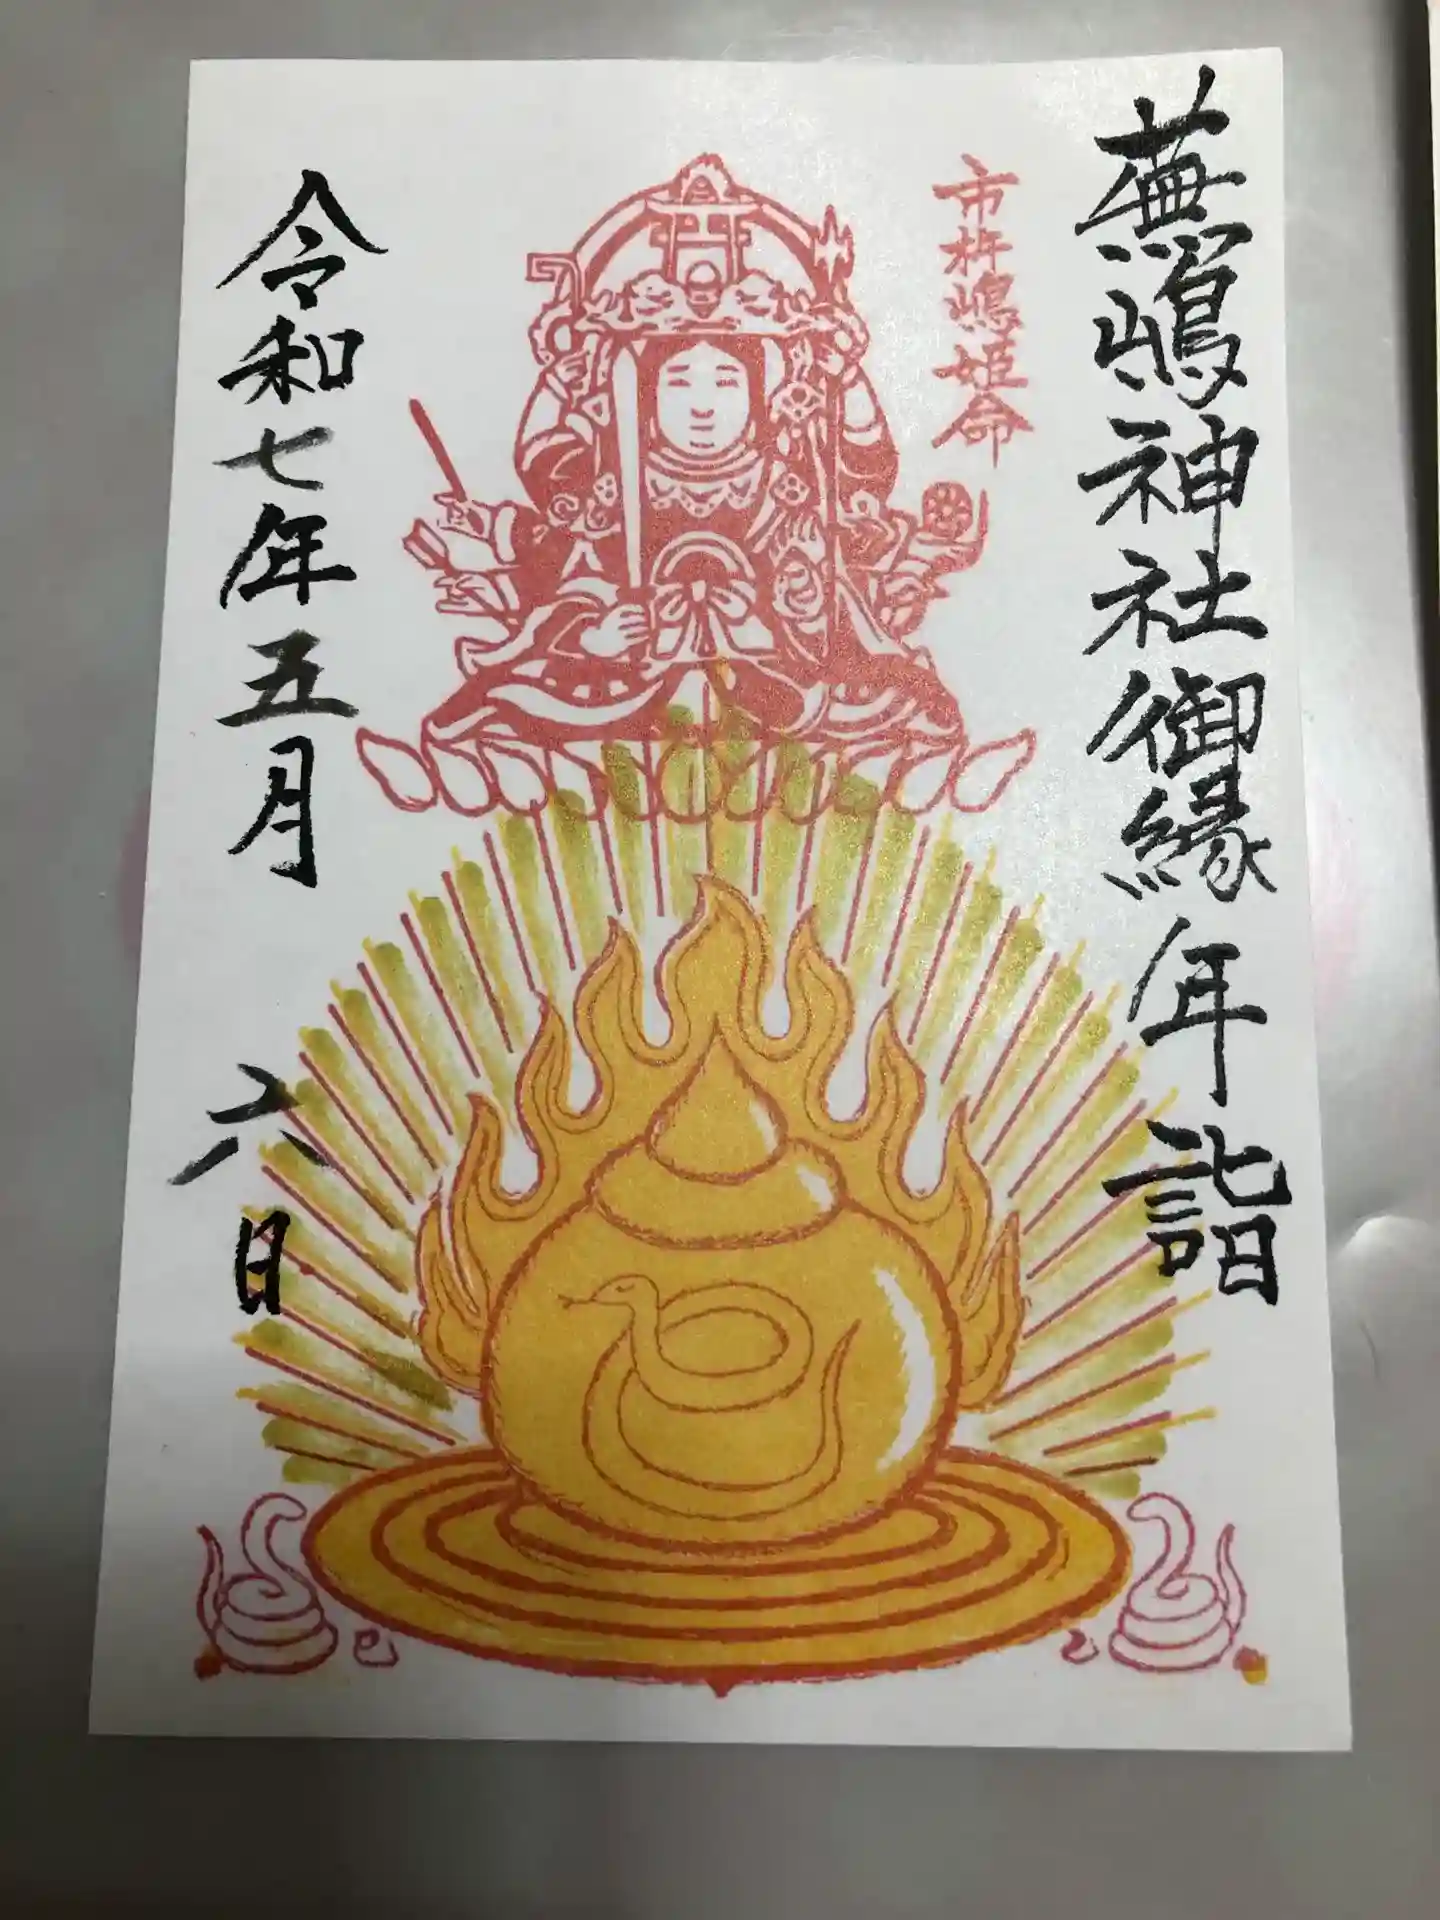 蕪嶋神社御縁年詣
市杵嶋姫命
令和七年五月六日